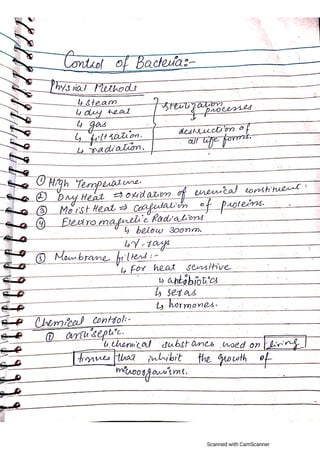 Control of Bacteria:-
Physical Methods
↳ steam
↳ dry heat
↳ gas
↳ filtration.
↳ radiation.
Sterilization
↳ processes
destruction of
all life forms.
① High Temperature.
② Dry Heat ⇒ oxidation of chemical constituent.
③ Moist Heat ⇒ Coagulation of proteins.
④ Electromagnetic Radiations
↳ below 300nm.
↳ γ-rays
⑤ Membrane filters:-
↳ For heat sensitive
↳ antibiotics
↳ seras
↳ hormones.
Chemical control:-
① antiseptic.
↳ chemical substances used on living
tissues that inhibit the growth of
microorganisms.
Scanned with CamScanner